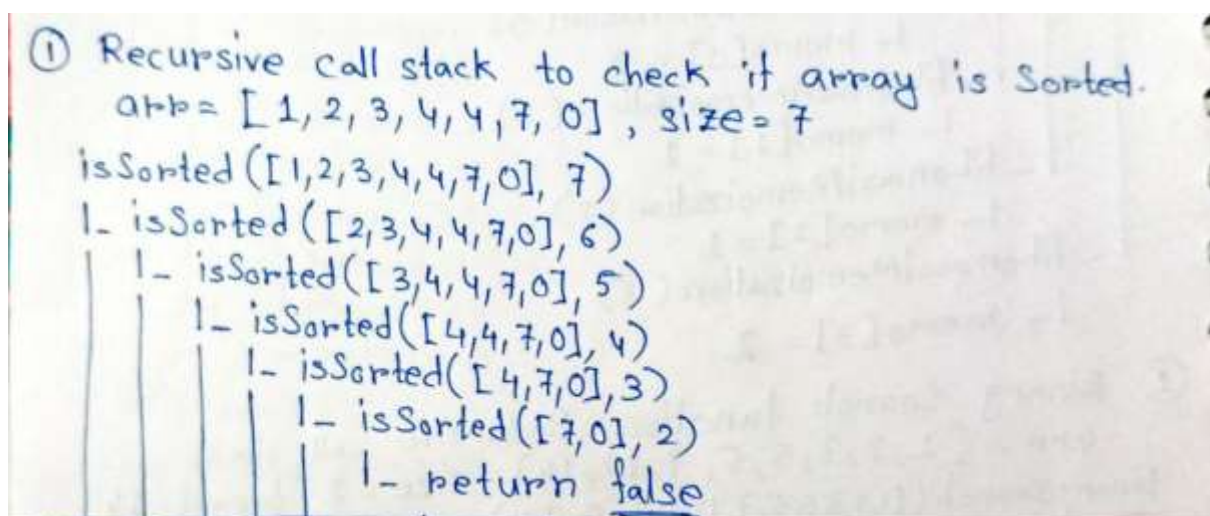 ① Recursive call stack to check if array is Sorted.
arr = [1, 2, 3, 4, 4, 7, 0] , size = 7
isSorted ([1,2,3,4,4,7,0], 7)
|- isSorted ([2,3,4,4,7,0], 6)
|- isSorted ([3,4,4,7,0], 5)
|- isSorted ([4,4,7,0], 4)
|- isSorted ([4,7,0], 3)
|- isSorted ([7,0], 2)
|- return false